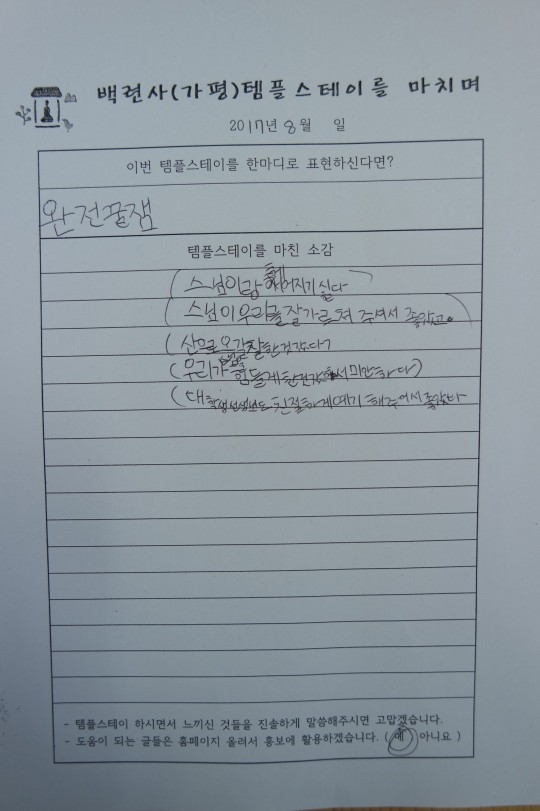 백련사(가평)템플스테이를 마치며
2017년 8월 일
이번 템플스테이를 한마디로 표현하신다면?
완전꿀잼
템플스테이를 마친 소감
(스님이랑 헤어지기 싫다
(스님이 우리를 잘가르쳐 주셔서 좋았고.
(산으로 오길 잘한것같다
(우리가 스님을 힘들게 한건같해서 미안하다)
(대학생선생님도 친절하게얘기 해주어서좋았다
- 템플스테이 하시면서 느끼신 것들을 진솔하게 말씀해주시면 고맙겠습니다.
- 도움이 되는 글들은 홈페이지 올려서 홍보에 활용하겠습니다. ( 예 아니요 )